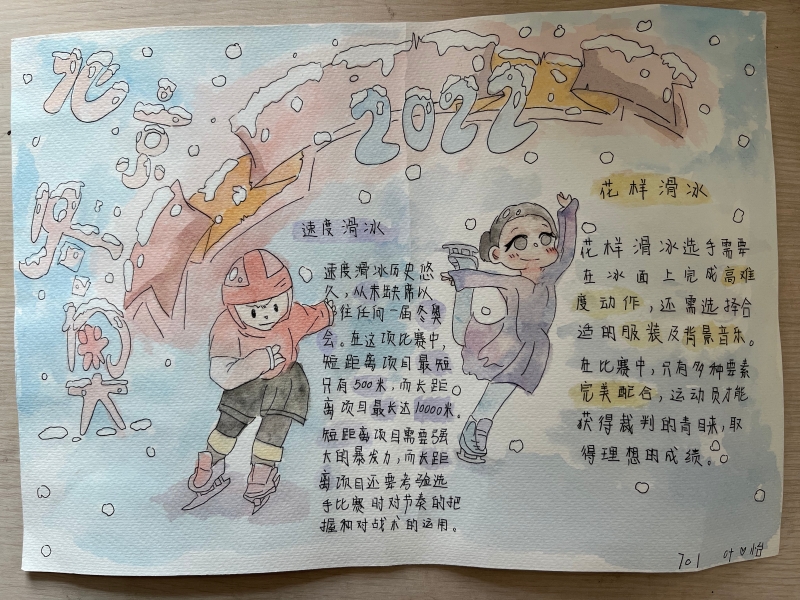 北京
奥
2022
速度滑冰
速度滑冰历史悠
久,从未缺席以
往任何一届冬奥
会。在这项比赛中,
短距离项目最短
只有500米,而长距
离项目最长达10000米。
短距离项目需要强
大的爆发力,而长距
离项目还要考验选
手比赛时对节奏的把
握和对战术的运用。
花样滑冰
花样滑冰选手需要
在冰面上完成高难
度动作,还需选择合
适的服装及背景音乐。
在比赛中,只有多种要素
完美配合,运动员才能
获得裁判的青睐,取
得理想的成绩。
701 叶 怡